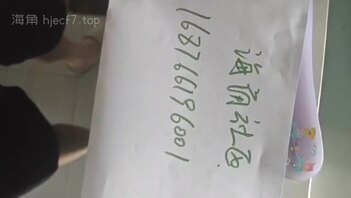 海角 hjecf7.top
海角社区
168766196001